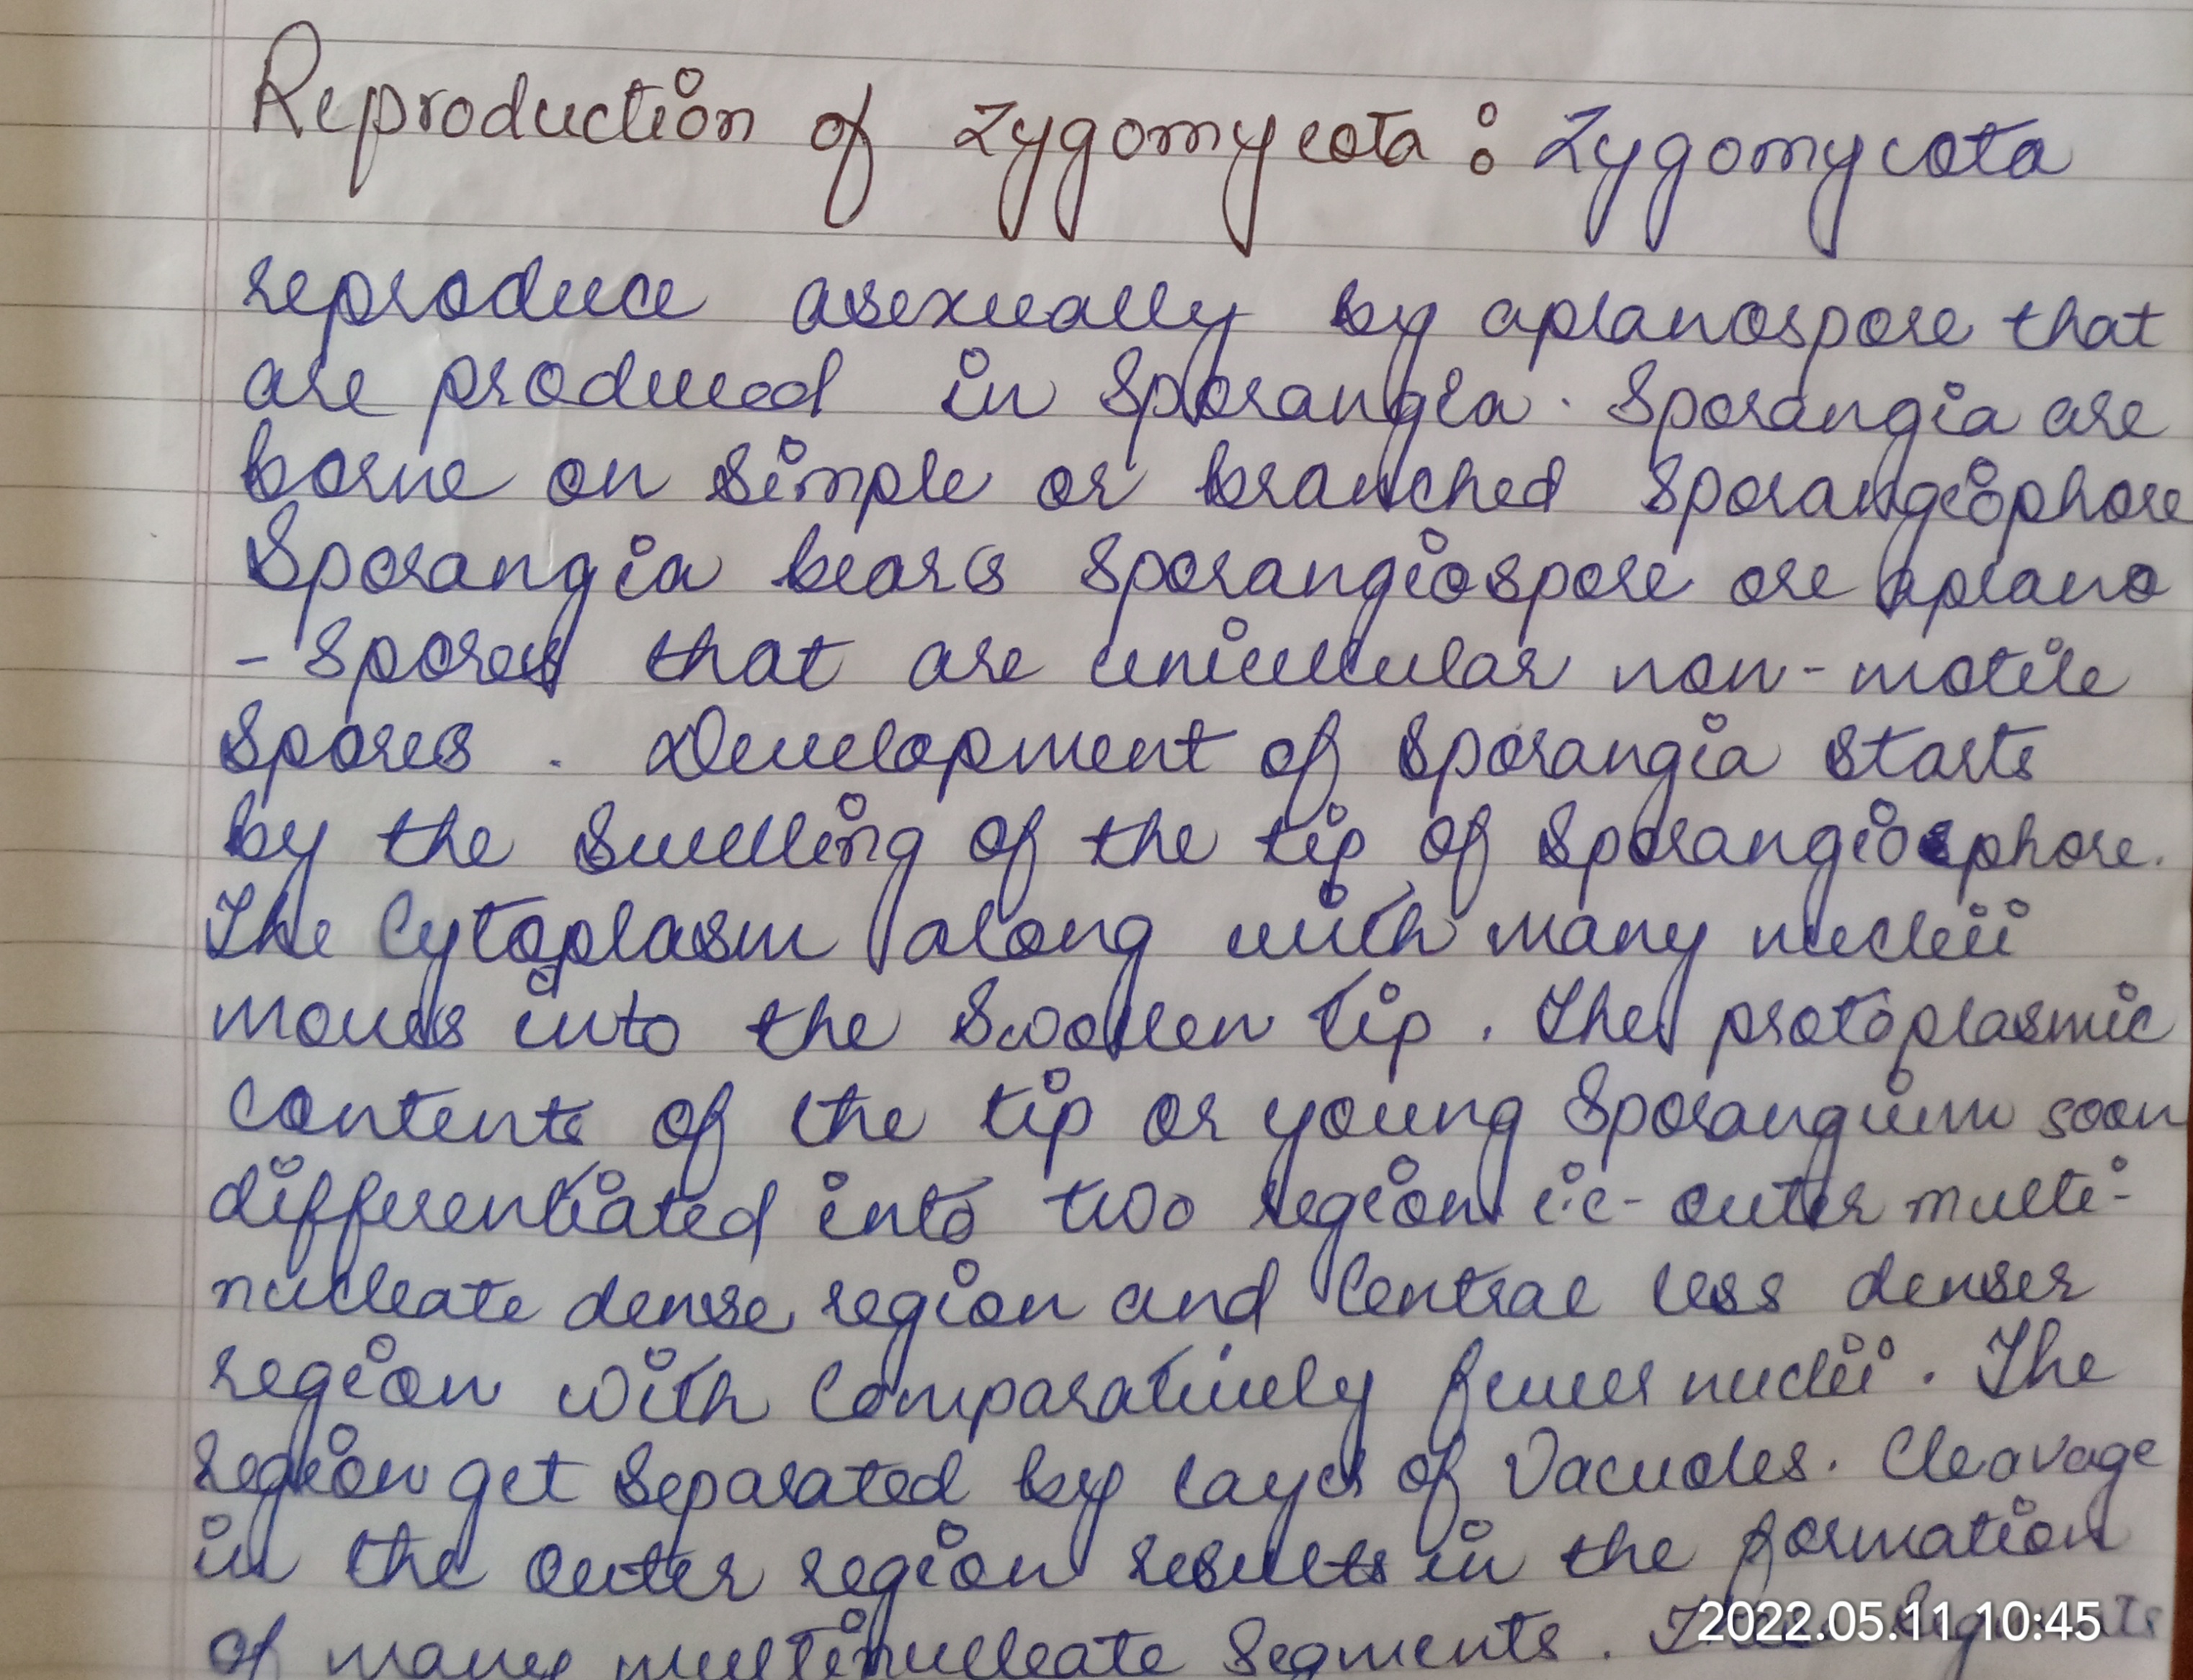 Reproduction of Zygomycota : Zygomycota
reproduce asexually by aplanospore that
are produced in Sporangia. Sporangia are
borne on simple or branched sporangiophore
Sporangia bears sporangiospore ore aplano
- spores that are unicellular non-motile
spores. Development of sporangia starts
by the swelling of the tip of sporangiophore.
The cytoplasm along with many nucleii
moves into the swollen tip. The protoplasmic
contents of the tip or young sporangium soon
differentiated into two region i.e- outer multi-
nucleate dense region and central less denser
region with comparatively fewer nuclii. The
region get separated by layer of Vacuoles. Cleavage
in the outer region results in the formation
of many multinucleate segments.
2022.05.11 10:45